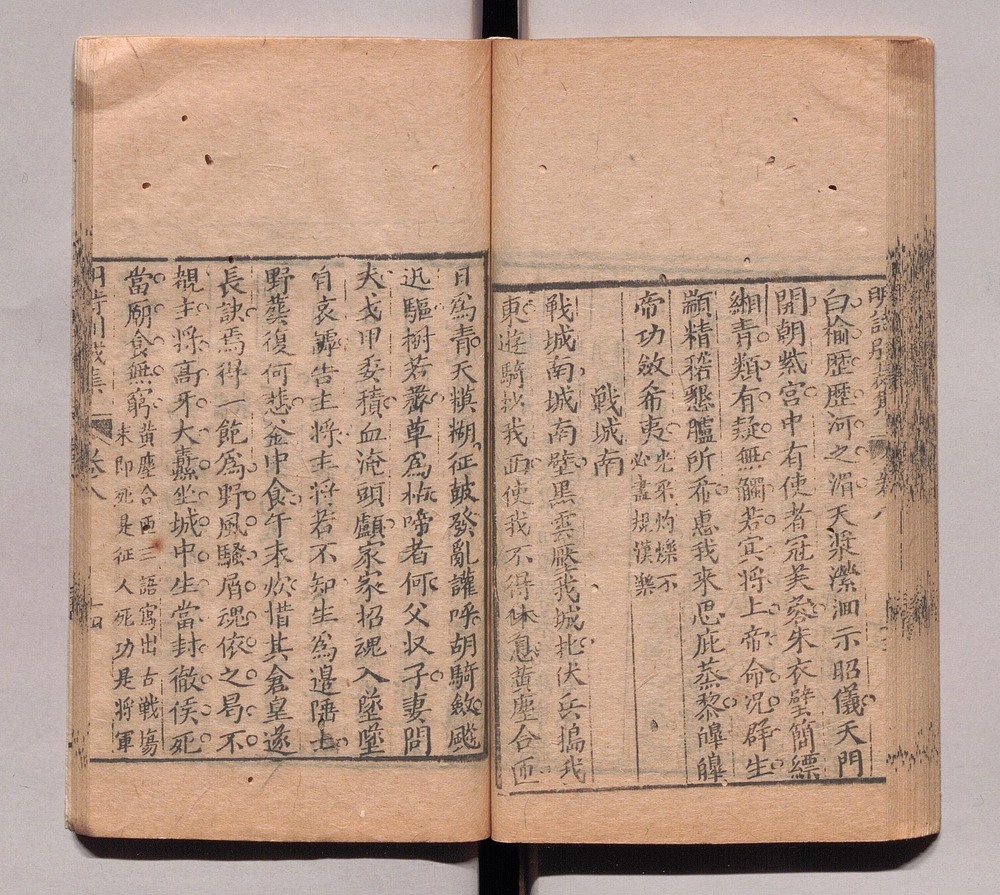 明詩別裁集 卷八
白榆歷歷河之湄天漿瀠洄示昭儀天門
開朝紫宮中有使者冠芙蓉朱衣璧簡縹
緗青類有疑無觸若宜將上帝命況群生
顓精稽懇臚所希惠我來思庇蒸黎皥皥
帝功斂希夷
光采灼爍不
必盡摸漢樂
戰城南
戰城南城南壁黒雲壓我城北伏兵搗我
東遊騎抄我西使我不得休息黃塵合匝
日爲青天模糊征鼓發亂讙呼胡騎斂颷
迅驅樹若薺草爲枯啼者何父収子妻問
夫戈甲委積血淹頭顱家家招魂入墜墜
自哀謼告主將主將若不知生爲邊陲士
野葬復何悲釡中食午未炊惜其倉皇遂
長訣焉得一飽爲野風騷屑魂依之曷不
覩主將高牙大纛坐城中生當封徹侯死
當廟食無窮
黃塵合匝三語寫出古戰塲
末即死是征人死功是將軍
明詩別裁集 卷八 十四